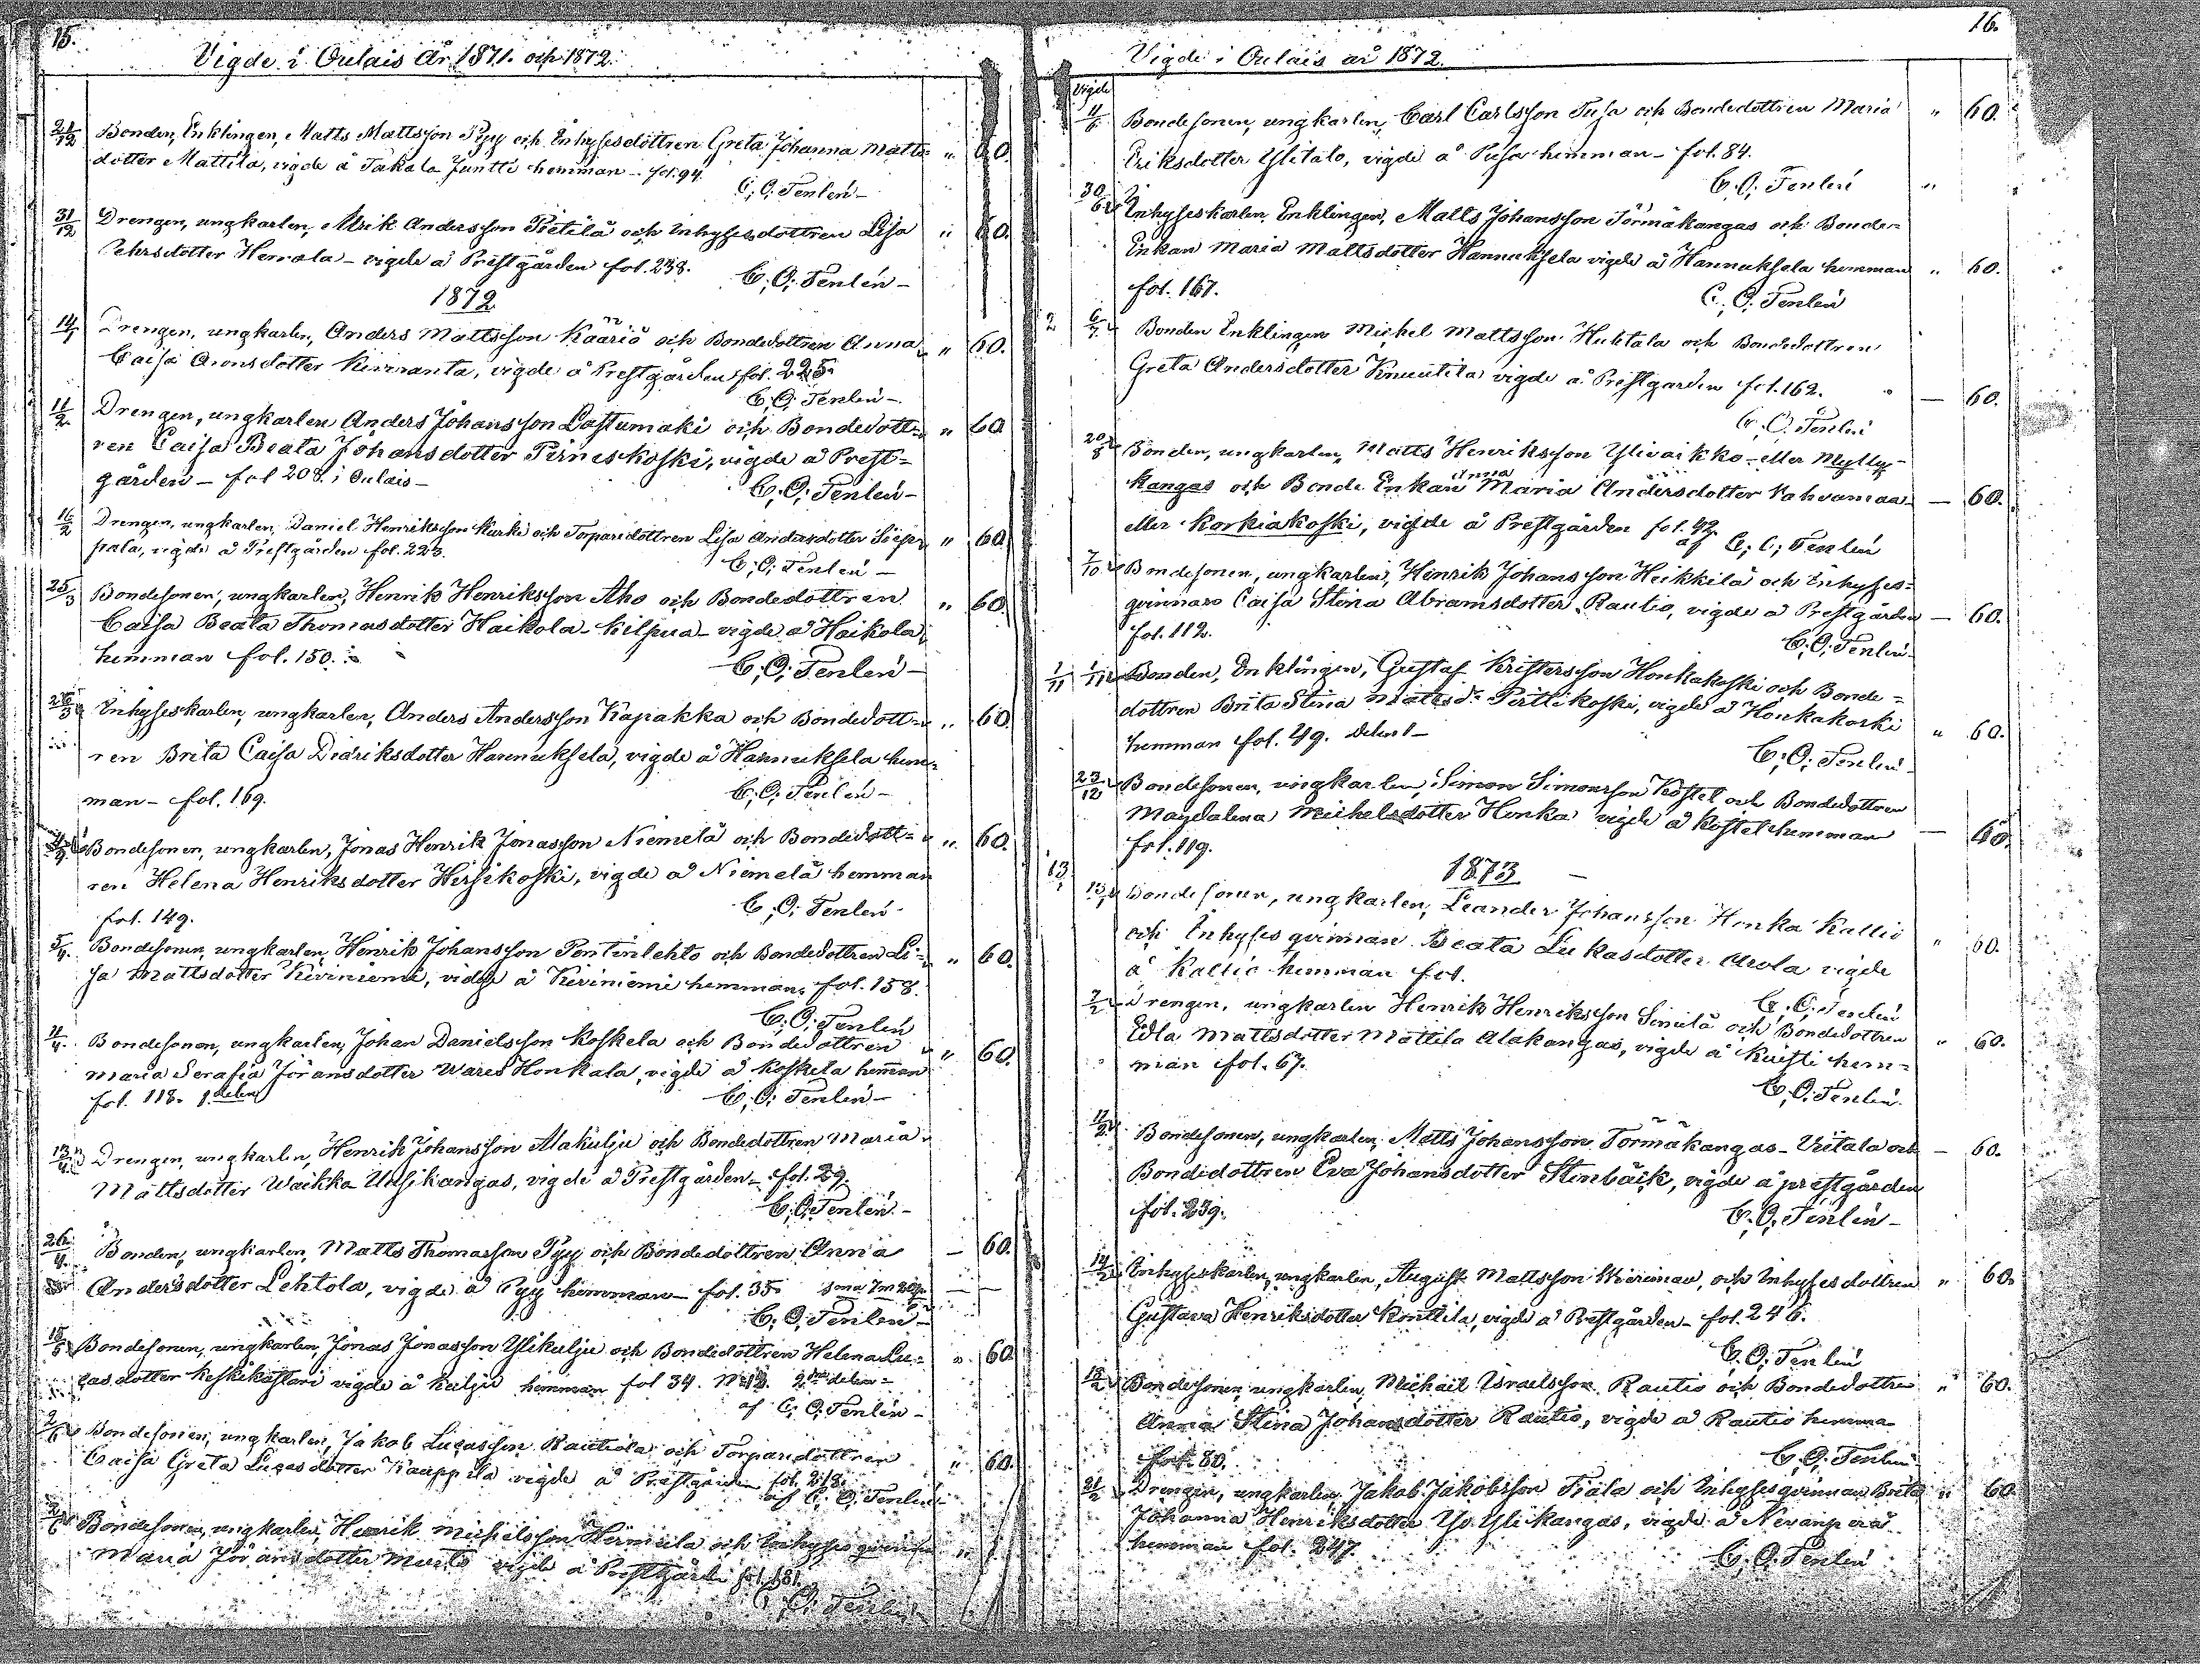 15.
Vigde i Oulais År 1871. och 1872.
21/12 Bonden, Enklingen, Matts Mattsson Pyy och Inhysesdottren Greta Johanna Matts= " 60.
dotter Mattila, vigde å Takala Juntti hemman – fol. 94.
C. O. Fenlén –
31/12 Drengen, ungkarlen, Ulrik Andersson Pietilä och Inhysesdottren Lisa " 60.
Pehrsdotter Herrala – vigde å Prestgården fol. 238.
C. O. Fenlén –
1872
14/1 Drengen, ungkarlen, Anders Mattsson Kääriä och Bondedottren Anna " 60.
Caisa Aronsdotter Kiviranta, vigde å Prestgården fol. 225.
C. O. Fenlén –
11/2 Drengen, ungkarlen Anders Johansson Lastumäki och Bondedott= " 60
ren Caisa Beata Johansdotter Pirneskoski, vigde å Prest=
gården – fol 208. i Oulais –
C. O. Fenlén –
16/2 Drengen, ungkarlen, Daniel Henriksson Kurki och Torparedottren Lisa Andersdotter Siip " 60
pala, vigde å Prestgården fol. 223.
C. O. Fenlén –
25/3 Bondesonen, ungkarlen, Henrik Henriksson Aho och Bondedottren " 60
Caisa Beata Thomasdotter Haikola – Kilpua – vigde å Haikola
hemman fol. 150.
C. O. Fenlén –
26/3 Inhyseskarlen, ungkarlen, Anders Andersson Kapakka och Bondedott= " 60
ren Brita Caisa Didriksdotter Hannuksela, vigde å Hannuksela hem=
man – fol. 169.
C. O. Fenlén –
Bondesonen, ungkarlen, Jonas Henrik Jonasson Niemelä och Bondedott= " 60.
ren Helena Henriksdotter Hirsikoski, vigde å Niemelä hemman
fol. 149.
C. O. Fenlén
5/4 Bondesonen, ungkarlen, Henrik Johansson Pontinlehto och Bondedottren Li= " 60.
sa Mattsdotter Kiviniemi, vidge å Kiviniemi hemman. fol. 158.
C. O. Fenlén
11/4. Bondesonen, ungkarlen, Johan Danielsson Koskela och Bondedottren " 60.
Maria Serafia Jöransdotter Wares Honkala, vigde å Koskela hemman
fol. 118. 1. delen
C. O. Fenlén –
13/4 Drengen, ungkarlen, Henrik Johansson Alakulju och Bondedottren Maria
Mattsdotter Waikka Uusikangas, vigde å Prestgården – fol. 29.
C. O. Fenlén –
26/4. Bonden, ungkarlen, Matts Thomasson Pyy och Bondedottren Anna – 60.
Andersdotter Lehtola, vigde å Pyy hemman – fol. 35
C. O. Fenlén –
Bondesonen, ungkarlen, Jonas Jonasson Ylikulju och Bondedottren Helena Lu= " 60
casdotter Keskikastari vigde å Kulju hemman fol 34. delen =
af C. O. Fenlén –
2/6 Bondesonen, ungkarlen, Jakob Lucasson Rautiola och Torparedottren " 60.
Caisa Greta Lucasdotter Kauppila vigde å Prestgården fol. 218.
af C. O. Fenlén
Bondesonen, ungkarlen, Henrik Michelsson Hirmula och Inhysesqvinnan
Maria Jöransdotter vigde å Prestgården fol. 181.
C. O. Fenlén
16.
Vigde i Oulais år 1872.
Vigde
Bondesonen, ungkarlen, Carl Carlsson Pusa och Bondedottren Maria " 60.
Eriksdotter Ylitalo, vigde å Pusa hemman – fol. 84.
C. O. Fenlén
30/6 Inhyseskarlen, Enklingen, Matts Johansson Törmäkangas och Bonde=
Enkan Maria Mattsdotter Hannuksela vigde å Hannuksela hemman " 60.
fol. 167.
C. O. Fenlén
2 6/7 Bonden Enklingen Michel Mattsson Huhtala och Bondedottren
Greta Andersdotter Knuutila vigde å Prestgården fol. 162. — 60.
C. O. Fenlén
20/8 Bonden, ungkarlen, Matts Henriksson Ylivaikko – eller Mylly-
kangas och Bonde Enkan Anna Maria Andersdotter Kahvamaa — 60.
eller Korkiakoski, vigde å Prestgården fol. 42.
af C. O. Fenlén
7/10 Bondesonen, ungkarlen, Henrik Johansson Heikkilä och Inhyses=
qvinnan Caisa Stina Abramsdotter Rautio, vigde å Prestgården — 60.
fol. 112.
C. O. Fenlén
1/11 1/11 Bonden, Enklingen, Gustaf Kristersson Honkakoski och Bonde=
dottren Brita Stina Matts dr Perttikoski, vigde å Honkakoski
hemman fol. 49. delen 1 – " 60.
C. O. Fenlén
23/12 Bondesonen, ungkarlen, Simon Simonsson Kastel och Bondedottren
Magdalena Michelsdotter Honka vigde å Kastel hemman — 60.
fol. 119.
13. 1873
13/1 Bondesonen, ungkarlen, Leander Johansson Honka Kallio
och Inhysesqvinnan Beata Lukasdotter Arola vigde " 60.
å Kallio hemman fol.
C. O. Fenlén
2/2 Drengen, ungkarlen Henrik Henriksson Similä och Bondedottren
Edla Mattsdotter Mattila Alakangas, vigde å Kuisti hem= " 60.
man fol. 67.
C. O. Fenlén
Bondesonen, ungkarlen, Matts Johansson Törmäkangas – Uitala och — 60.
Bondedottren Eva Johansdotter Stenbäck, vigde å prestgården
fol. 239.
C. O. Fenlén –
14/2 Inhyseskarlen, ungkarlen, August Mattsson Wierimaa, och Inhysesdottren " 60.
Gustava Henriksdotter Konttila, vigde å Prestgården – fol. 246.
C. O. Fenlén
Bondesonen, ungkarlen, Michail Israelsson Rautio och Bondedottre " 60.
Anna Stina Johansdotter Rautio, vigde å Rautio hemma
fol. 80.
C. O. Fenlén
21/2 Drengen, ungkarlen, Jakob Jakobsson Tiala och Inhysesqvinnan Brita " 60
Johanna Henriksdotter Yli Ylikangas, vigde å Nevanperä
hemman fol. 247.
C. O. Fenlén